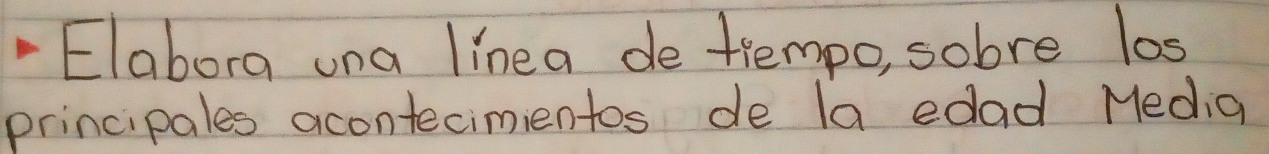 Elabora una línea de tiempo, sobre los
principales acontecimientos de la edad Media